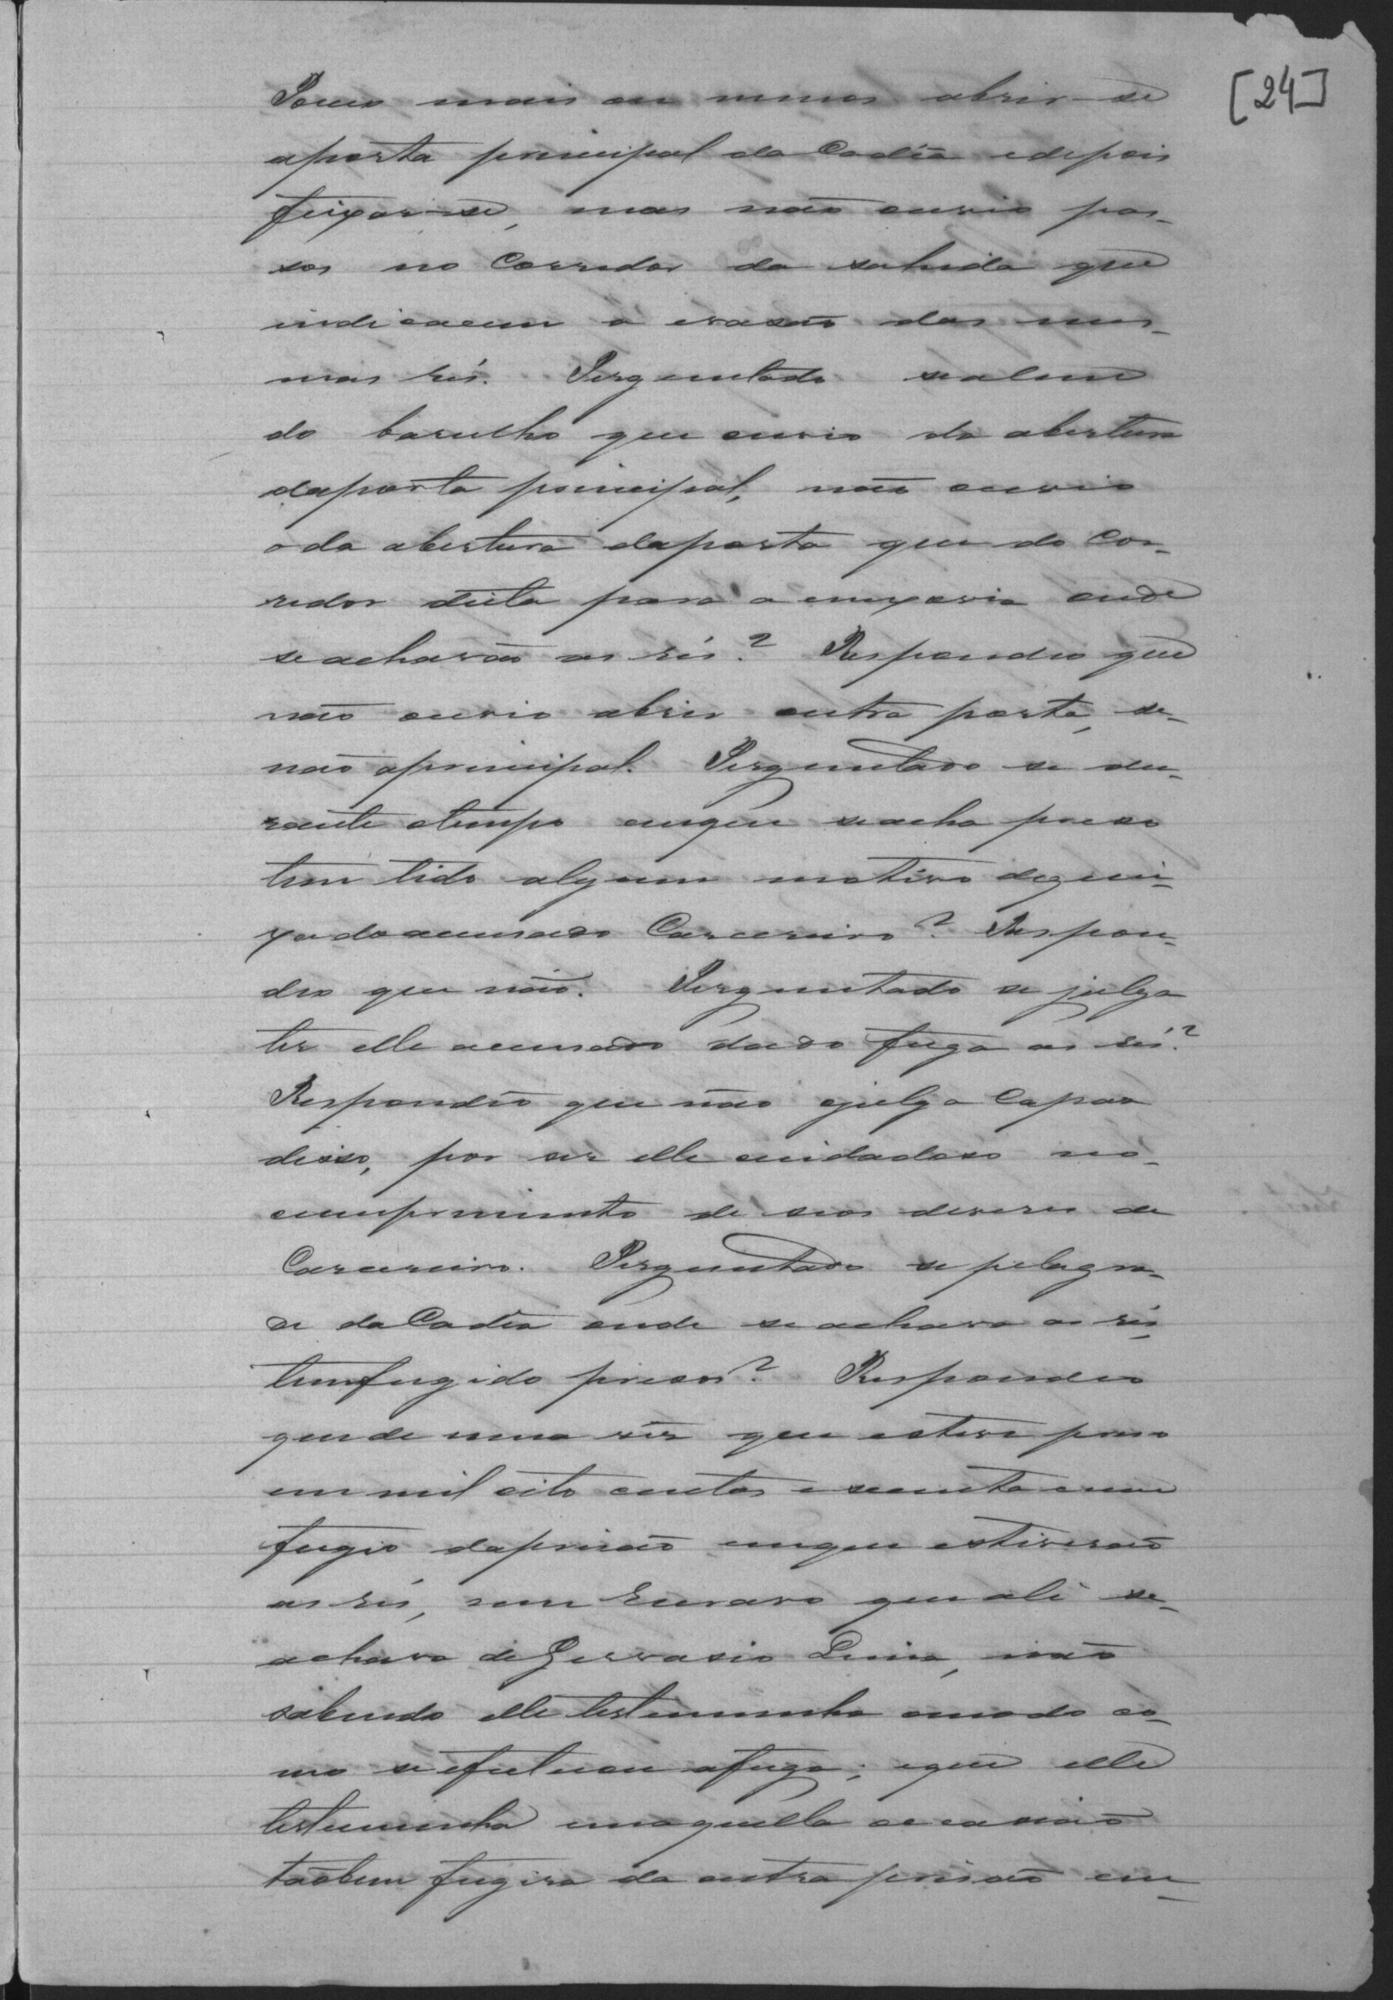 [24]
Pouco mais ou menos abrir-se
aporta principal da Cadêa edepois
feixar-se, mas não ouvio pas-
sos no Corredor da sahida que
indicacem a evasão das mes-
mas rés. Perguntado sealem
do barulho que ouvio da abertura
daporta principal, não ouvio
o da abertura daporta que do Cor-
redor deita para a enxovia onde
seachavão as rés? Respondeo que
não ouvio abrir outra porta, se-
não aprincipal. Perguntado se du-
rante otempo emque seacha preso
tem tido algum motivo dequei-
xa doacusado Carcereiro? Respon-
deo que não. Perguntado se julga
ter elle acusado dado fuga as rés?
Respondeo que não ojulga Capaz
disso, por ser elle cuidadoso no
cumprimento de seos deveres de
Carcereiro. Perguntado se pelagra-
de daCadêa onde se achava as rés
temfugido presos? Respondeo
quede uma vez que esteve preso
em mil oito centos e secenta e um
fugio daprisão emque estiverão
as rés, um Escravo queali se-
achava de Gervasio Lima, não
sabendo elle testemunha omodo co-
mo se efetuou afuga; eque elle
testemunha emaquella occasião
tãobem fugira da outra prisão em-